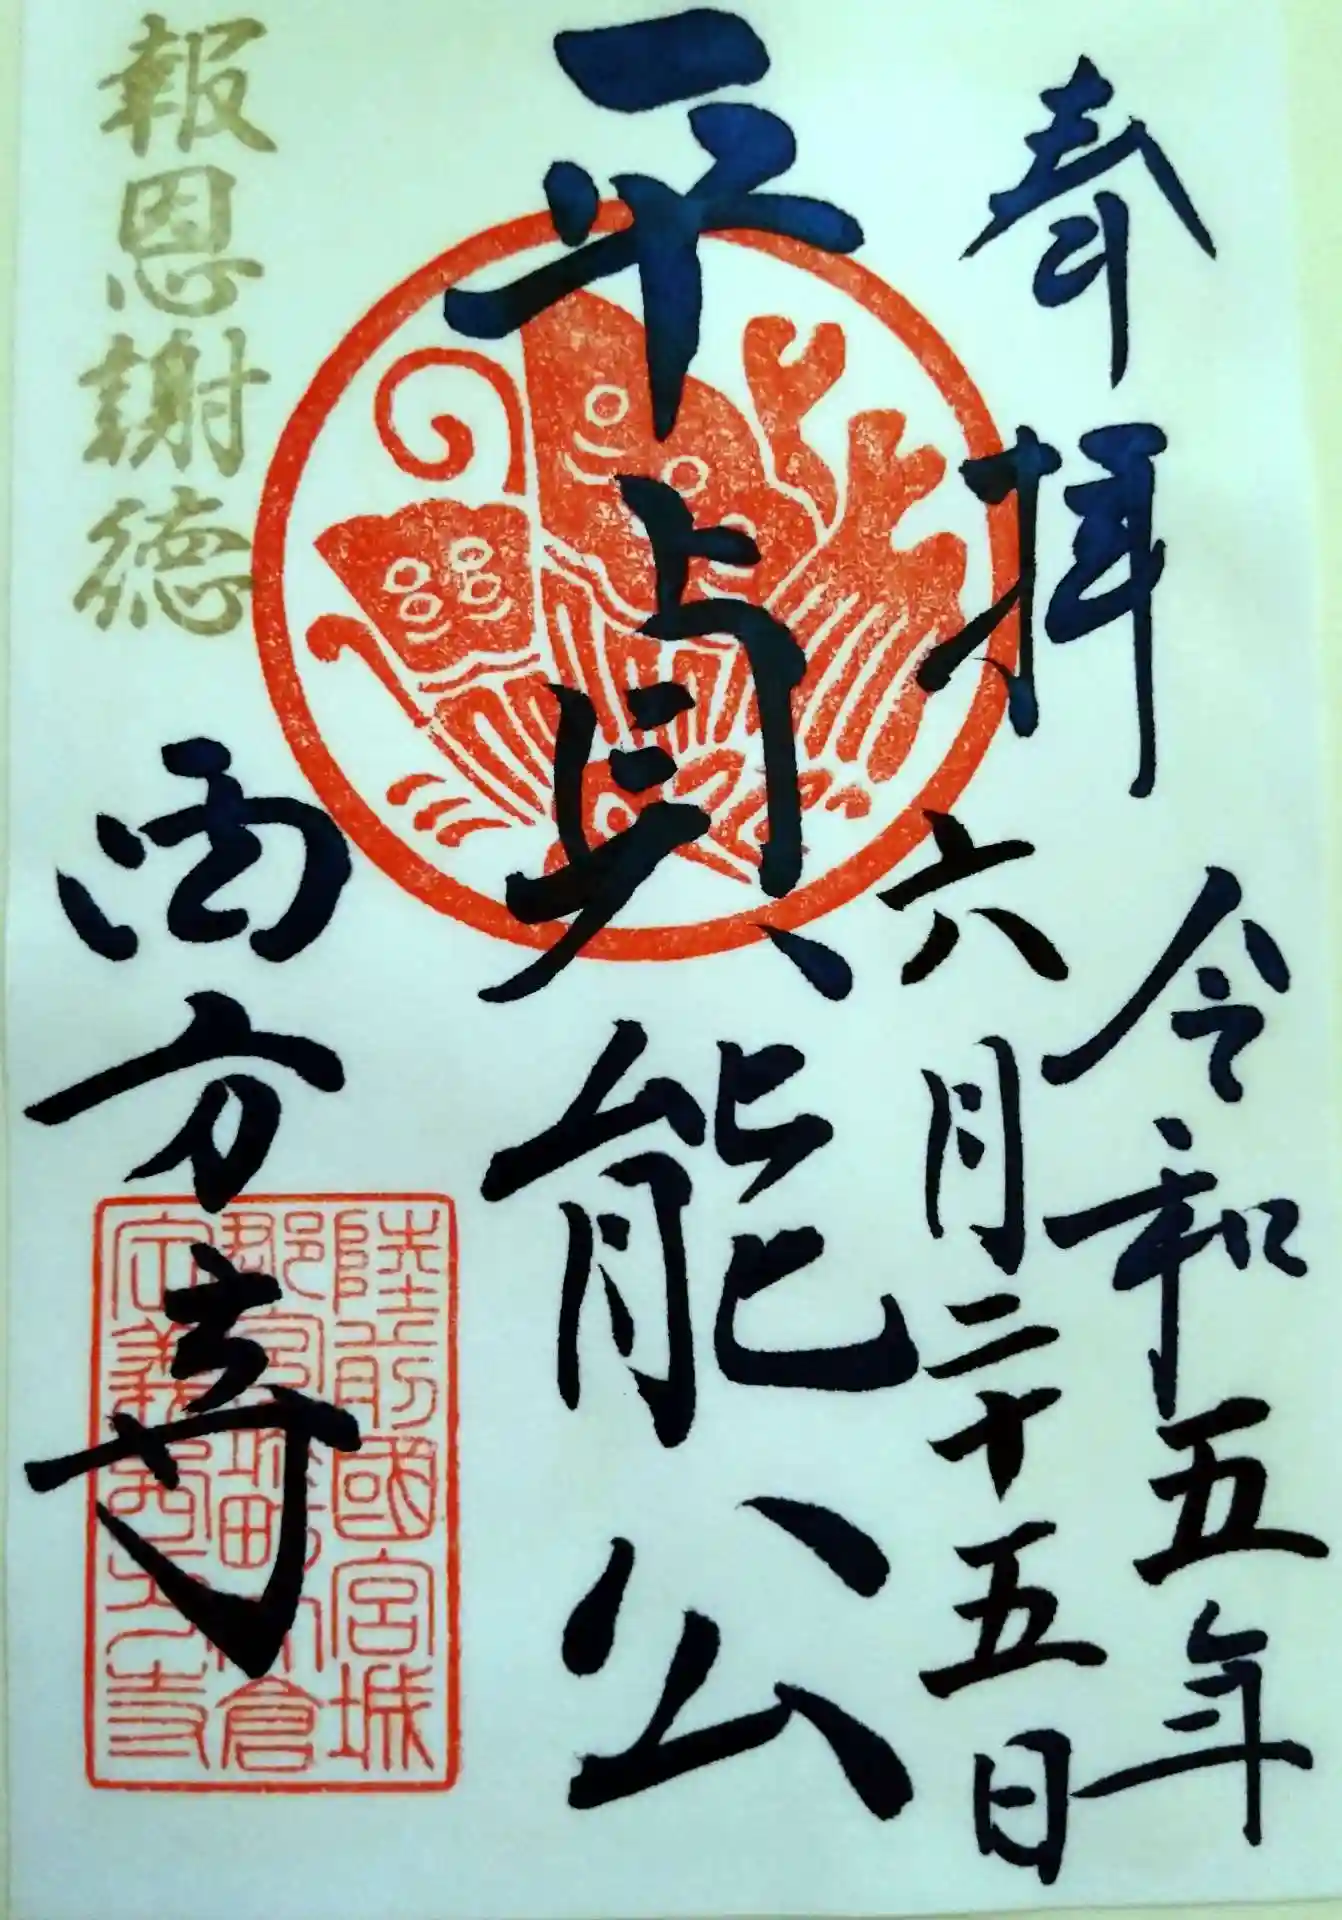 奉拝
令和五年
六月二十五日
平貞能公
報恩謝徳
西方寺
陸前國宮城
郡宮城町大倉
定義西方寺